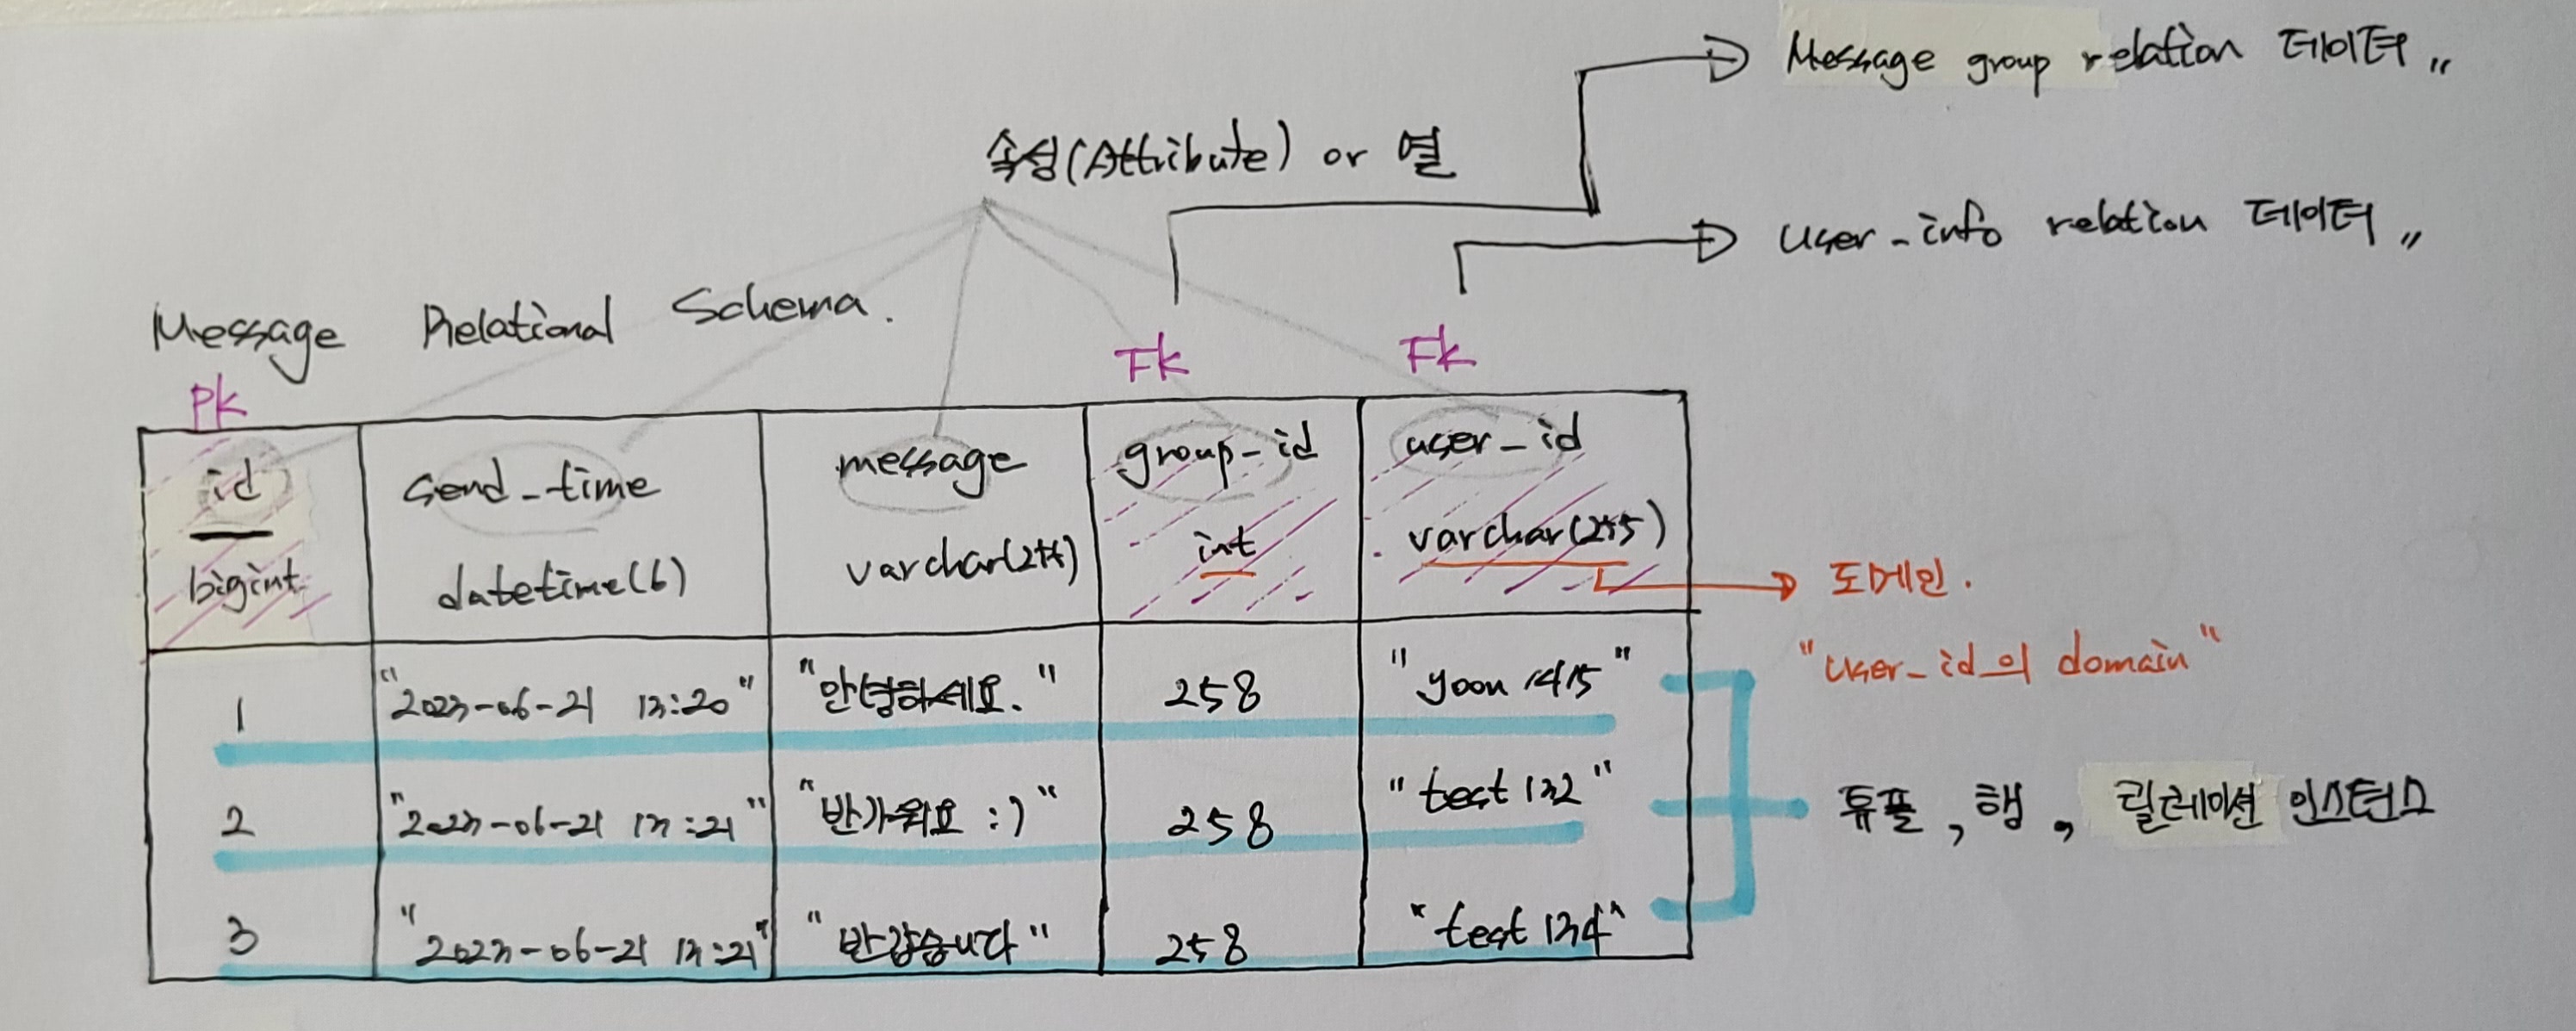 Message group relation 데이터 〃
속성(Attribute) or 열
user_info relation 데이터 〃
Message Relational Schema.
PK FK FK
id send_time message group_id user_id
bigint datetime(6) varchar(255) int varchar(255)
도메인.
"user_id의 domain"
1 "2023-06-21 13:20" "안녕하세요." 258 "yoon1415"
2 "2023-06-21 13:21" "반가워요 :)" 258 "test132"
튜플, 행, 릴레이션 인스턴스
3 "2023-06-21 13:21" "반갑습니다" 258 "test134"